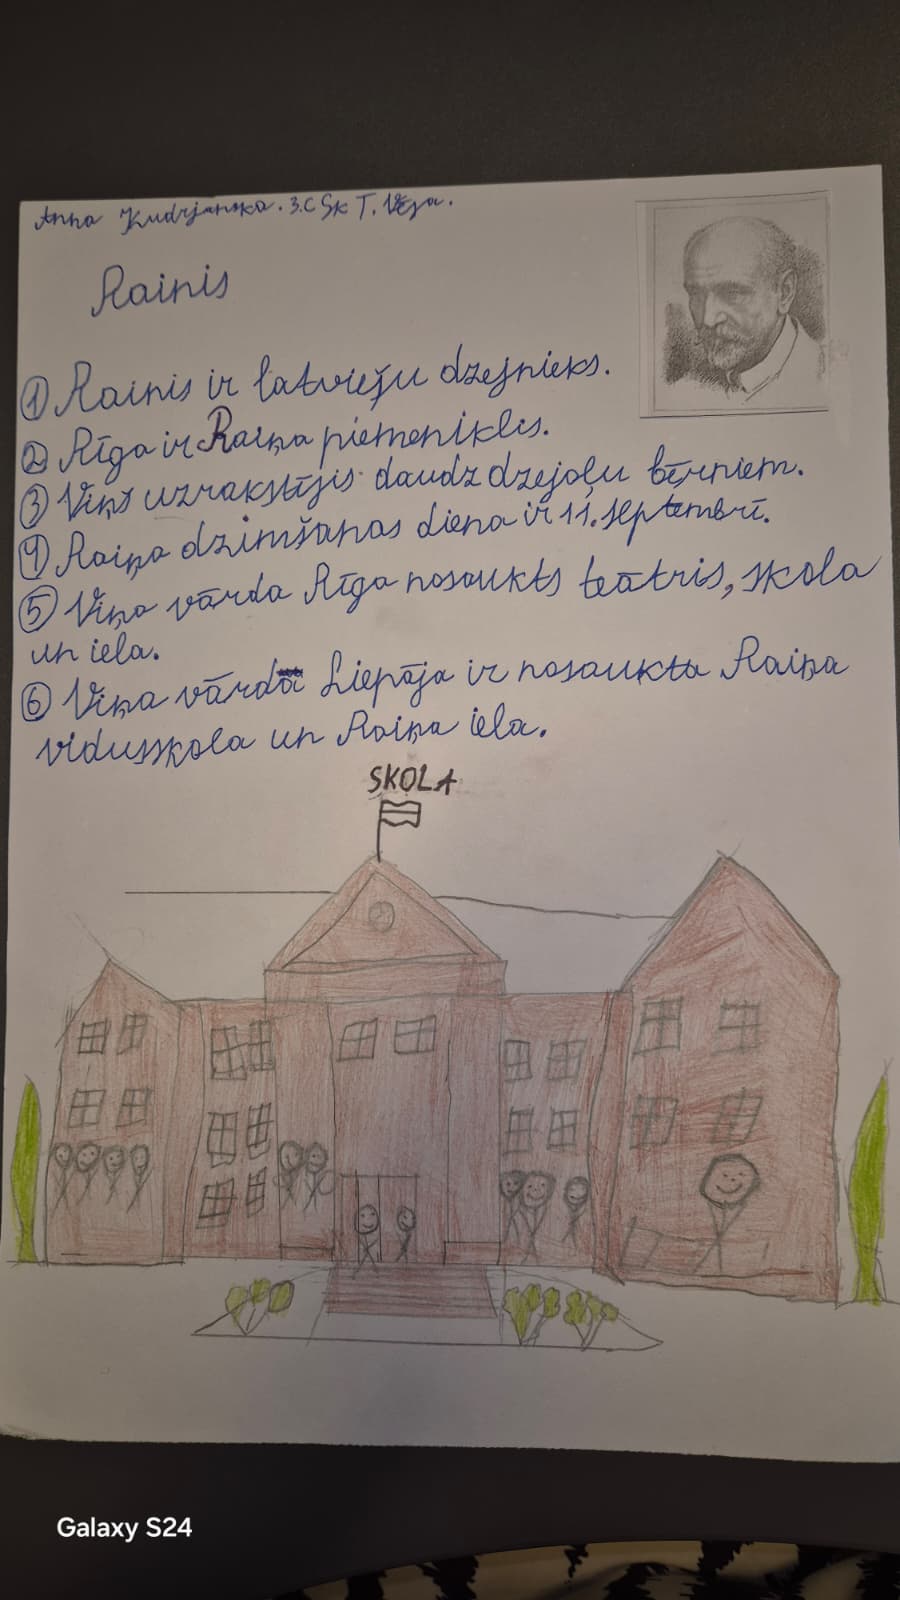 Anna Kudrjanska. 3.C Sk T. Vēja.
Rainis
① Rainis ir latviešu dzejnieks.
② Rīga ir Raiņa piemeniklis.
③ Viņš uzrakstījis daudz dzejoļu bērniem.
④ Raiņa dzimšanas diena ir 11. septembrī.
⑤ Viņa vārda Rīga nosaukts teātris, skola
un iela.
⑥ Viņa vārdā Liepāja ir nosaukta Raiņa
vidusskola un Raiņa iela.
SKOLA
Galaxy S24